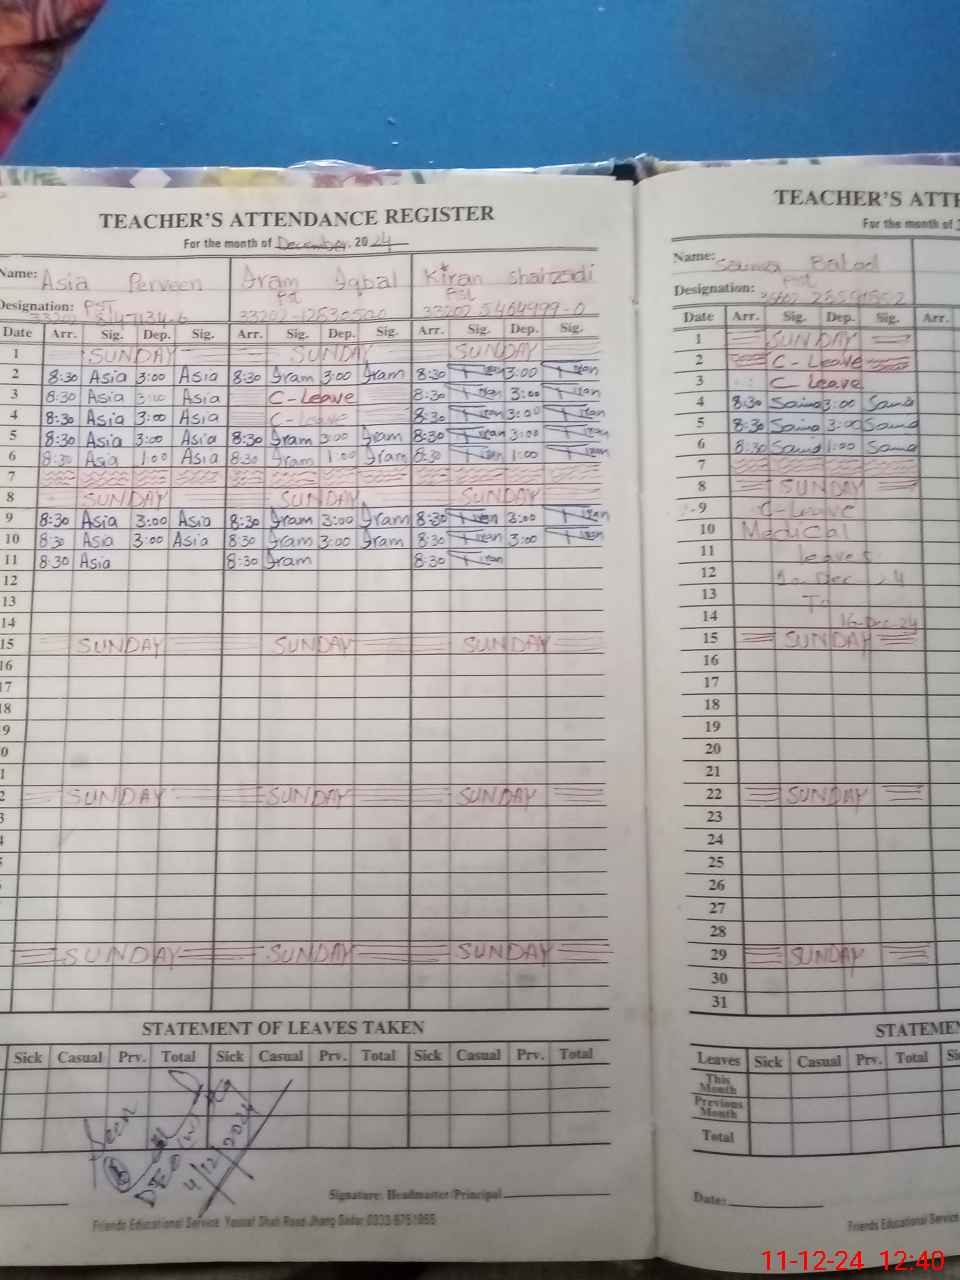 TEACHER'S ATTENDANCE REGISTER
For the month of December 2024
Name: Asia Perveen Iram Iqbal Kiran Shahzadi
Designation: PST PST PST
33202
Date Arr. Sig. Dep. Sig. Arr. Sig. Dep. Sig. Arr. Sig. Dep. Sig.
1 SUNDAY SUNDAY SUNDAY
2 8:30 Asia 3:00 Asia 8:30 Iram 3:00 Iram 8:30 Kiran 3:00 Kiran
3 8:30 Asia 3:00 Asia C-Leave 8:30 Kiran 3:00 Kiran
4 8:30 Asia 3:00 Asia C-Leave 8:30 Kiran 3:00 Kiran
5 8:30 Asia 3:00 Asia 8:30 Iram 3:00 Iram 8:30 Kiran 3:00 Kiran
6 8:30 Asia 1:00 Asia 8:30 Iram 1:00 Iram 8:30 Kiran 1:00 Kiran
7
8 SUNDAY SUNDAY SUNDAY
9 8:30 Asia 3:00 Asia 8:30 Iram 3:00 Iram 8:30 Kiran 3:00 Kiran
10 8:30 Asia 3:00 Asia 8:30 Iram 3:00 Iram 8:30 Kiran 3:00 Kiran
11 8:30 Asia 8:30 Iram 8:30 Kiran
12
13
14
15 SUNDAY SUNDAY SUNDAY
16
17
18
9
0
1
2 SUNDAY SUNDAY SUNDAY
3
SUNDAY SUNDAY SUNDAY
STATEMENT OF LEAVES TAKEN
Sick Casual Prv. Total Sick Casual Prv. Total Sick Casual Prv. Total
Seen
DEO (W)
4/12/2024
Signature: Headmaster/Principal
Friends Educational Service Yousaf Shah Road Jhang Sadar
TEACHER'S ATTE
For the month of
Name: Saima
Designation: PST
Date Arr. Sig. Dep. Sig. Arr.
1 SUNDAY
2 C-Leave
3 C Leave
4 8:30 Saima 3:00 Saima
5 8:30 Saima 3:00 Saima
6 8:30 Saima 1:00 Saima
7
8 SUNDAY
9 C-Leave
10 Medical
11 leaves
12 10-Dec-24
13 To
14 16-Dec-24
15 SUNDAY
16
17
18
19
20
21
22 SUNDAY
23
24
25
26
27
28
29 SUNDAY
30
31
STATEMEN
Leaves Sick Casual Prv. Total
This Month
Previous Month
Total
Date:
Friends Educational Service
11-12-24 12:40